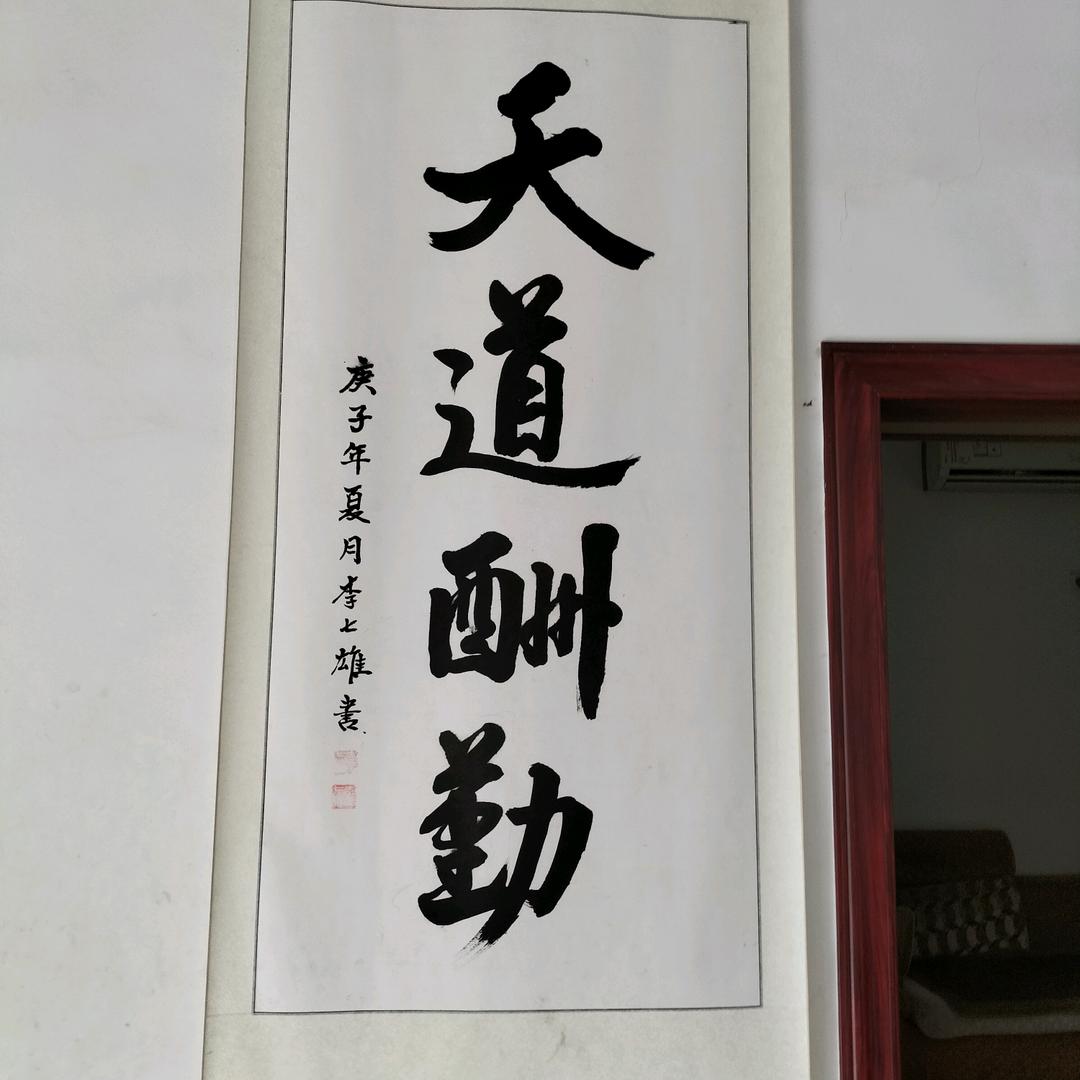 天道酬勤
庚子年夏月李七雄書